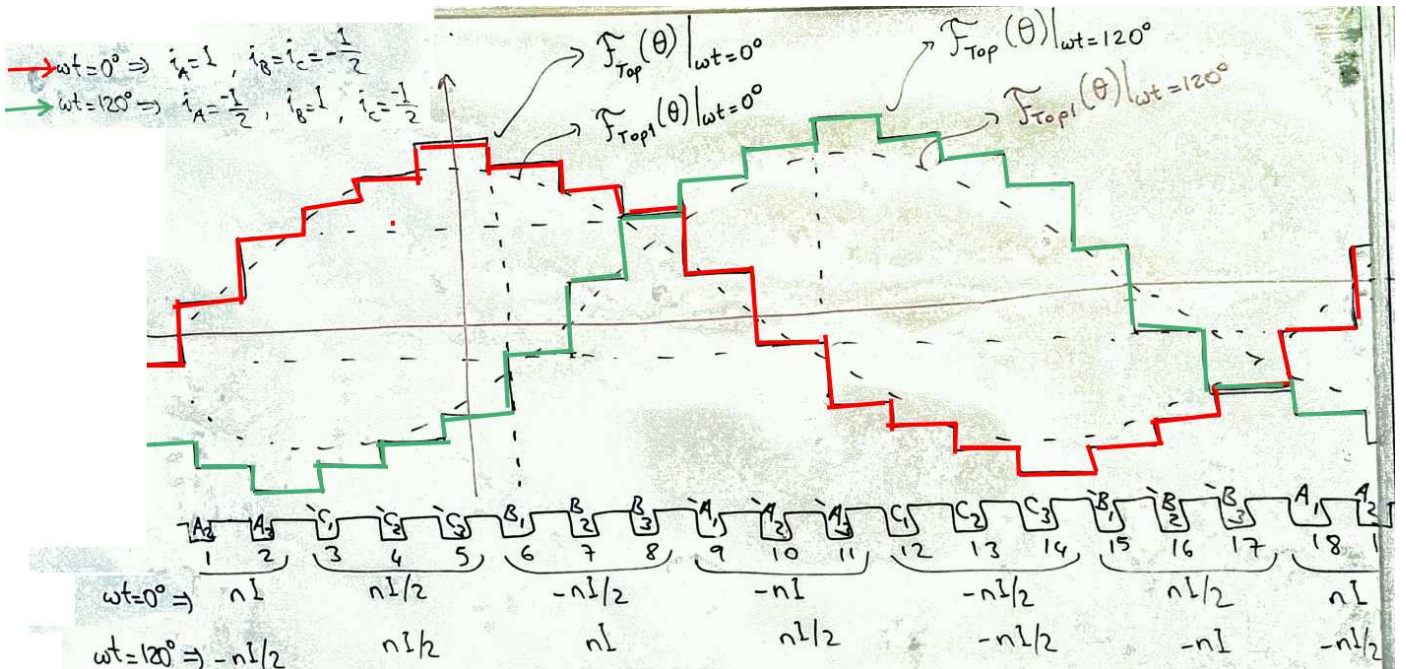 ωt=0° ⇒ i_A=I , i_B=i_C=-I/2
ωt=120° ⇒ i_A=-I/2 , i_B=I , i_C=-I/2
F_Top(θ)|ωt=0°
F_Top1(θ)|ωt=0°
F_Top(θ)|ωt=120°
F_Top1(θ)|ωt=120°
A₂ A₃ `C₁ `C₂ `C₃ B₁ B₂ B₃ `A₁ `A₂ `A₃ C₁ C₂ C₃ `B₁ `B₂ `B₃ A₁ A₂
1 2 3 4 5 6 7 8 9 10 11 12 13 14 15 16 17 18 1
ωt=0° ⇒ nI nI/2 -nI/2 -nI -nI/2 nI/2 nI
ωt=120° ⇒ -nI/2 nI/2 nI nI/2 -nI/2 -nI -nI/2